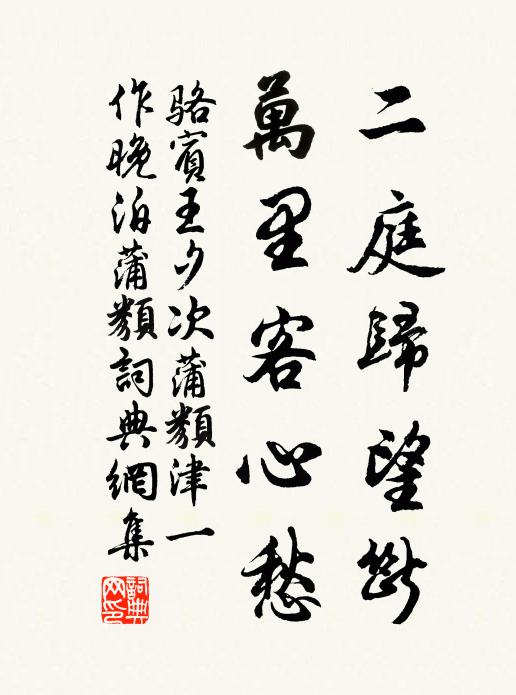 二庭歸望斷
萬里客心愁
駱賓王夕次蒲類津一
作晚泊蒲類詞典網集
詞典
网印